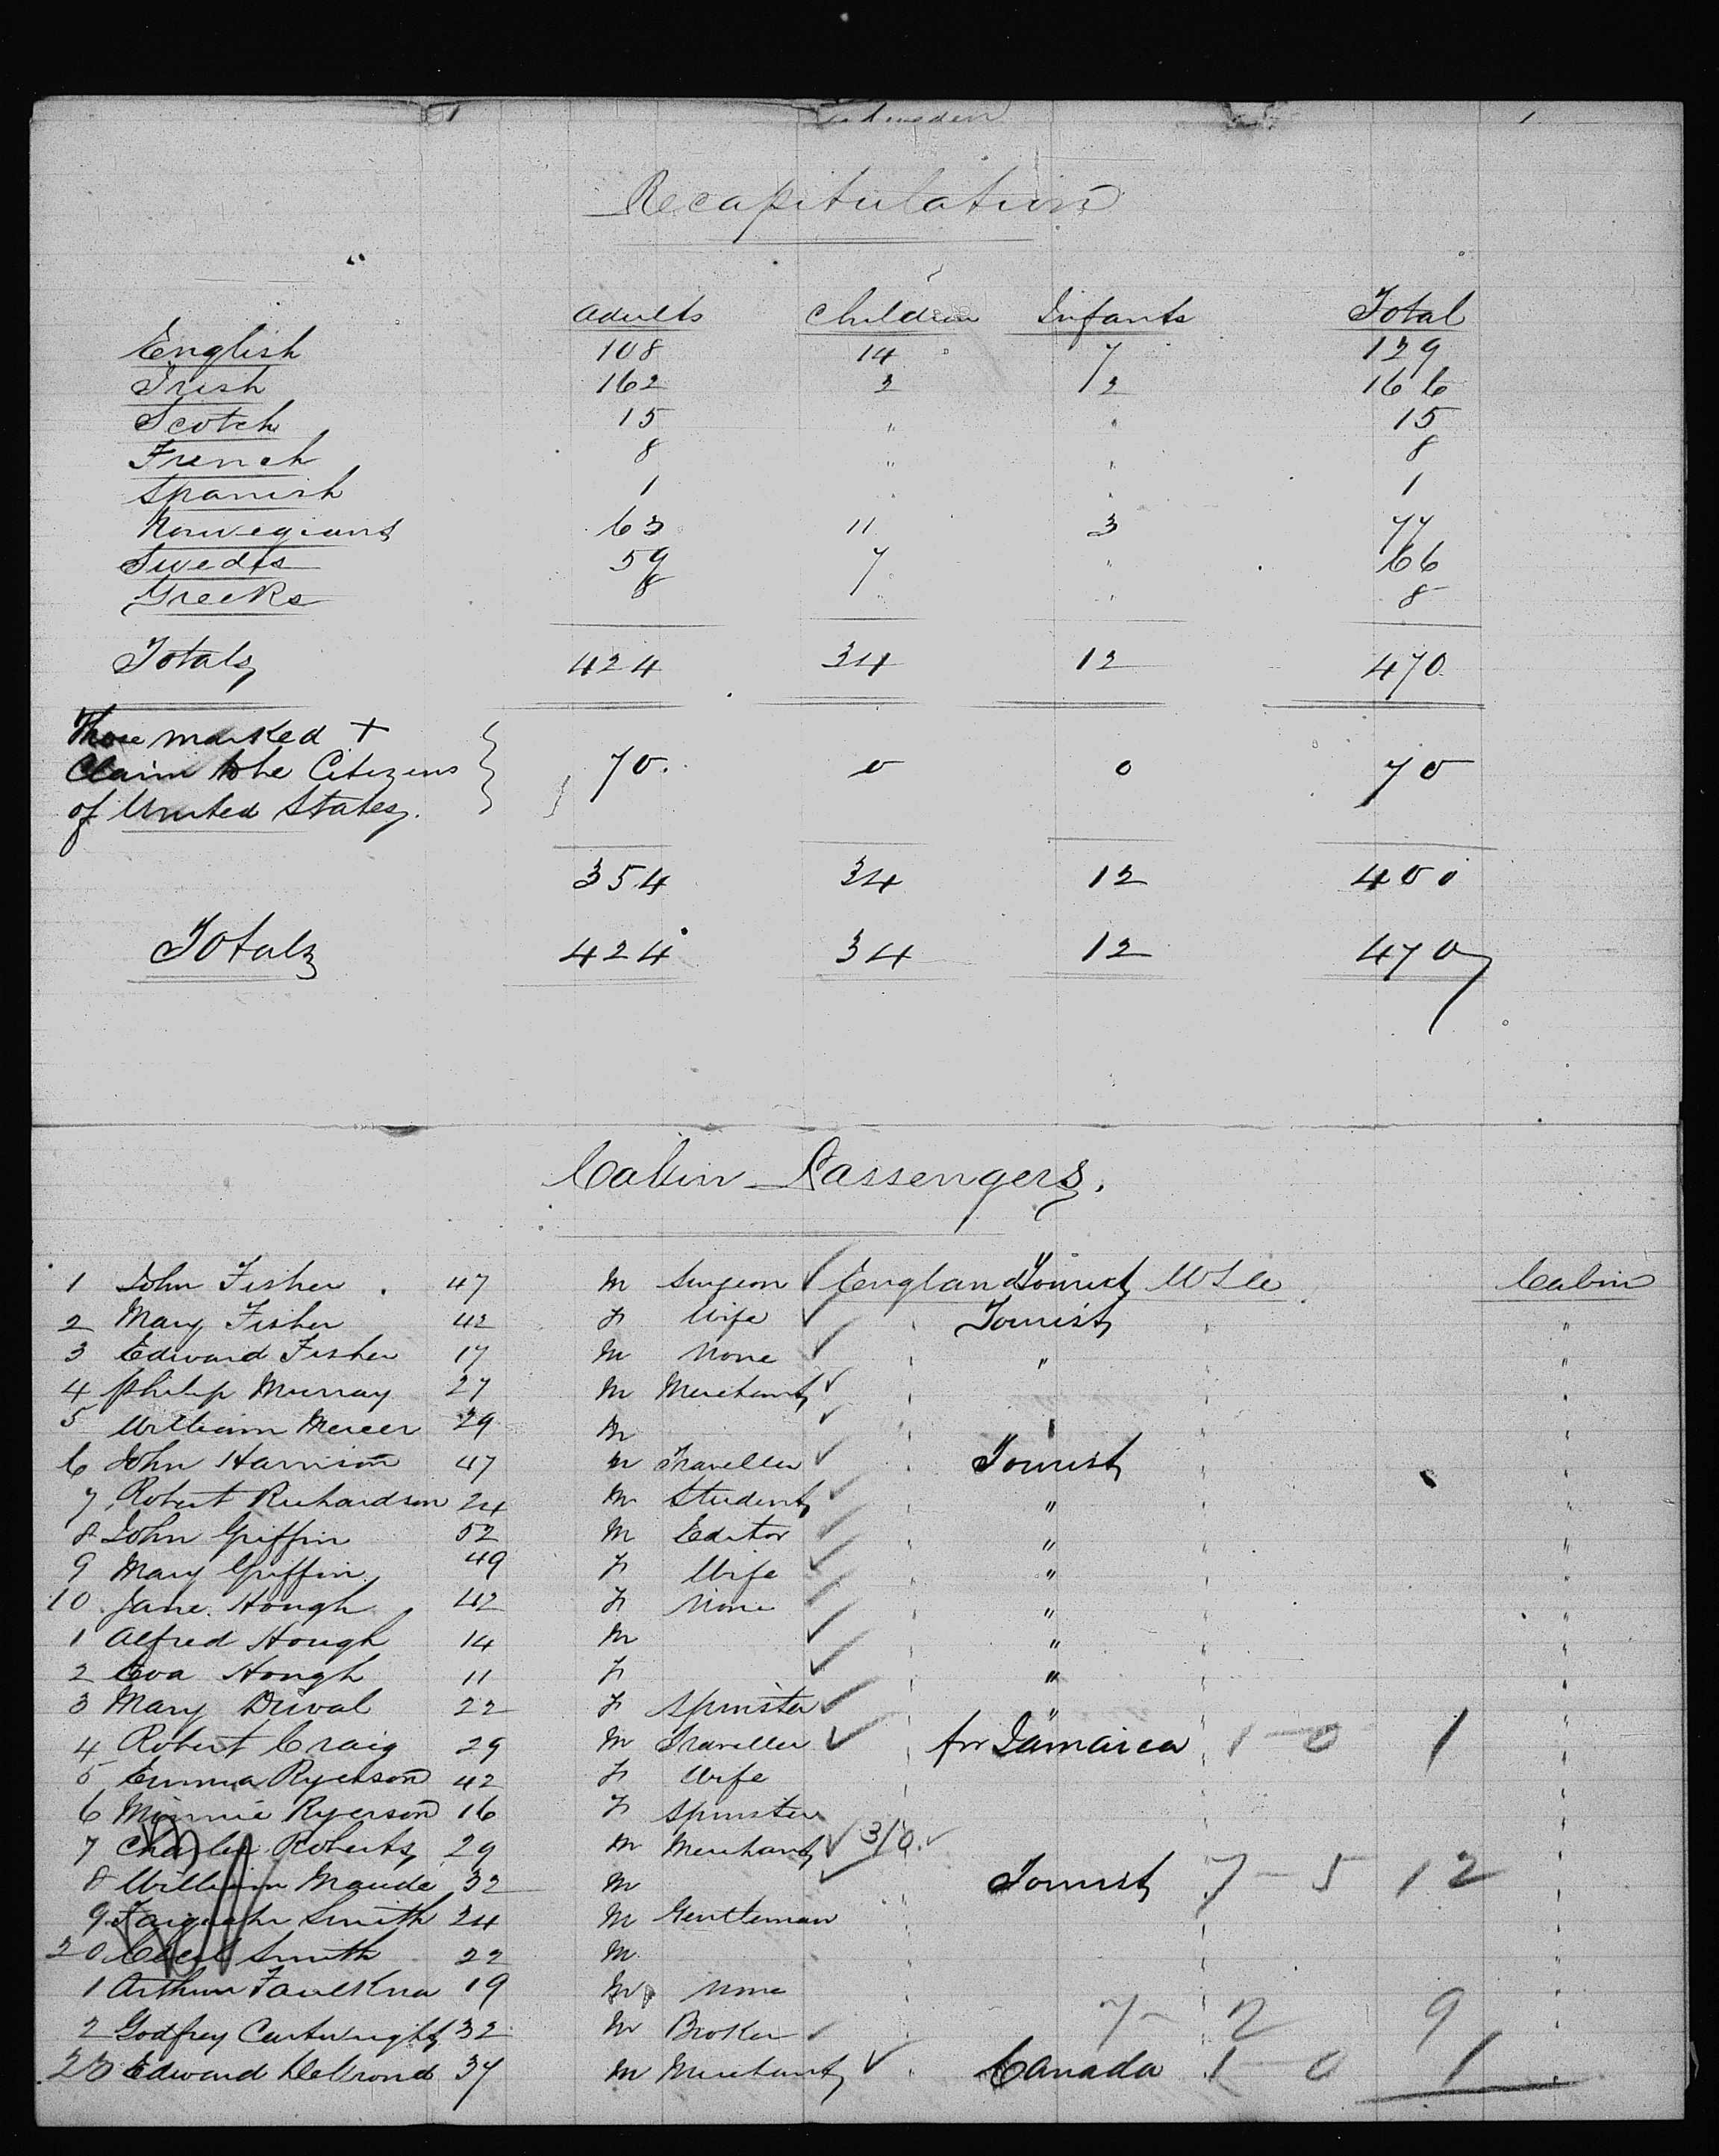 Recapitulation
Adults Children Infants Total
English 108 14 7 129
Irish 162 2 2 166
Scotch 15 " " 15
French 8 " " 8
Spanish 1 " " 1
Norwegians 63 11 3 77
Swedes 59 7 " 66
Greeks 8 " " 8
Totals 424 34 12 470
Those marked +
Claim to be Citizens 70. 0 0 70
of United States.
354 34 12 400
Totals 424 34 12 470
Cabin Passengers.
1 John Fisher 47 M Surgeon ✓ England Tourist Cabin
2 Mary Fisher 42 F Wife ✓ " Tourist " "
3 Edward Fisher 17 M None ✓ " " "
4 Philip Murray 27 M Merchant ✓ " "
5 William Mercer 29 M ✓ " "
6 John Harrison 47 M Traveller ✓ " Tourist " "
7 Robert Richardson 24 M Student ✓ " " " "
8 John Griffin 52 M Editor ✓ " " " "
9 Mary Griffin 49 F Wife ✓ " " " "
10 Jane Hough 42 F None ✓ " " " "
1 Alfred Hough 14 M ✓ " " " "
2 Eva Hough 11 F ✓ " " " "
3 Mary Duval 22 F Spinster ✓ " " " "
4 Robert Craig 29 M Traveller ✓ " for Jamaica " 1 - 0 1 "
5 Emma Ryerson 42 F Wife " " "
6 Minnie Ryerson 16 F Spinster " "
7 Charles Roberts 29 M Merchant ✓ 3/0 ✓ " "
8 William Maude 32 M ✓ Tourist 7 - 5 12 "
9 Smith 24 M Gentleman " " "
20 Cecil Smith 22 M " " "
1 Arthur Faulkner 19 M None " " "
2 Godfrey Cartwright 32 M Broker ✓ " 7 - 2 9 "
23 Edward 37 M Merchant ✓ " Canada 1 - 0 1 "